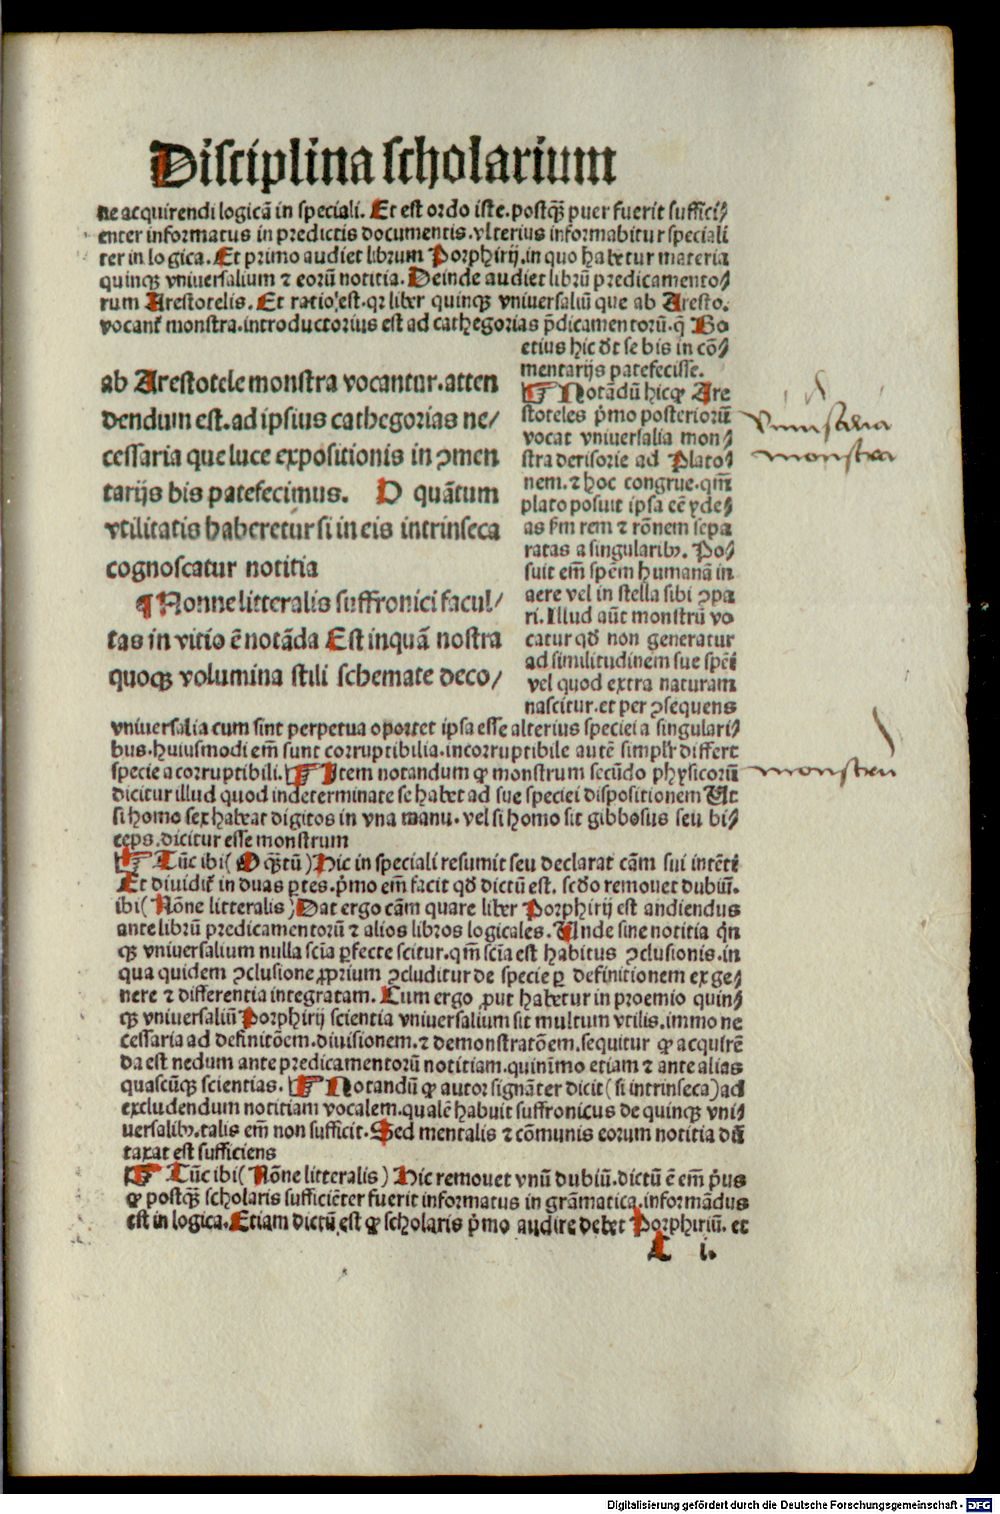 Disciplina scholarium
ne acquirendi logicā in speciali. Et est ordo iste. postqꝫ puer fuerit suffici/
enter informatus in predictis documentis. vlterius informabitur speciali
ter in logica. Et primo audiet librum Porphirij. in quo habetur materia
quinqꝫ vniuersalium ⁊ eorū notitia. Deinde audiet librū predicamento/
rum Arestotelis. Et ratio est. qꝛ liber quinqꝫ vniuersaliū que ab Aresto.
vocant᷑ monstra. introductorius est ad cathegorias p̄dicamentorū. q̄ Bo
etius hic dt̄ se bis in cō/
mentarijs patefecisse.
ab Arestotele monstra vocantur. atten
dendum est. ad ipsius cathegorias ne/
cessaria que luce expositionis in ꝯmen
tarijs bis patefecimus. O quātum
vtilitatis haberetur si in eis intrinseca
cognoscatur notitia
¶ Nonne litteralis suffronici facul/
tas in vitio ē notāda Est inquā nostra
quoqꝫ volumina stili schemate deco/
☞ Notādū hic ꝙ Are
stoteles p̄mo posteriorū
vocat vniuersalia mon/
stra derisorie ad Plato/
nem. ⁊ hoc congrue. qm̄
plato posuit ipsa eē yde/
as s̄m rem ⁊ rōnem sepa
ratas a singularibꝫ. Po/
suit em̄ spēm humanā in
aere vel in stella sibi ꝯpa
ri. Illud aūt monstrū vo
catur qd̄ non generatur
ad similitudinem sue spēi
vel quod extra naturam
nascitur. et per ꝯsequens
vniuersalia cum sint perpetua oportet ipsa esse alterius speciei a singulari/
bus. huiusmodi em̄ sunt corruptibilia. incorruptibile autē simplr̄ differt
specie a corruptibili. ☞ Item notandum ꝙ monstrum secūdo physicorū
dicitur illud quod indeterminate se habet ad sue speciei dispositionem Ut
si homo sex habeat digitos in vna manu. vel si homo sit gibbosus seu bi/
ceps. dicitur esse monstrum
☞ Tūc ibi (O qꝫtū) Hic in speciali resumit seu declarat cām sui intēti
Et diuidit᷑ in duas ꝑtes. p̄mo em̄ facit qd̄ dictū est. scd̄o remouet dubiū.
ibi (Nōne litteralis) Dat ergo cām quare liber Porphirij est audiendus
ante librū predicamentorū ⁊ alios libros logicales. Unde sine notitia qn̄
qꝫ vniuersalium nulla scīa ꝑfecte scitur. qm̄ scīa est habitus ꝯclusionis. in
qua quidem ꝯclusione ꝓprium ꝯcluditur de specie ꝑ definitionem ex ge/
nere ⁊ differentia integratam. Cum ergo ꝓut habetur in proemio quin/
qꝫ vniuersaliū Porphirij scientia vniuersalium sit multum vtilis. immo ne
cessaria ad definitōem. diuisionem. ⁊ demonstratōem. sequitur ꝙ acquirē
da est nedum ante predicamentorū notitiam. quinīmo etiam ⁊ ante alias
quascūqꝫ scientias. ☞ Notandū ꝙ autor signāter dicit (si intrinseca) ad
excludendum notitiam vocalem. qualē habuit suffronicus de quinqꝫ vni/
uersalibꝫ. talis em̄ non sufficit. Sed mentalis ⁊ cōmunis eorum notitia dū
taxat est sufficiens
☞ Tūc ibi (Nōne litteralis) Hic remouet vnū dubiū. dictū ē em̄ p̄us
ꝙ postqꝫ scholaris sufficiēter fuerit informatus in grāmatica. informādus
est in logica. Etiam dictū est ꝙ scholaris p̄mo audire debet Porphiriū. et
C i.
vniusalia
monstra
monstru
Digitalisierung gefördert durch die Deutsche Forschungsgemeinschaft - DFG